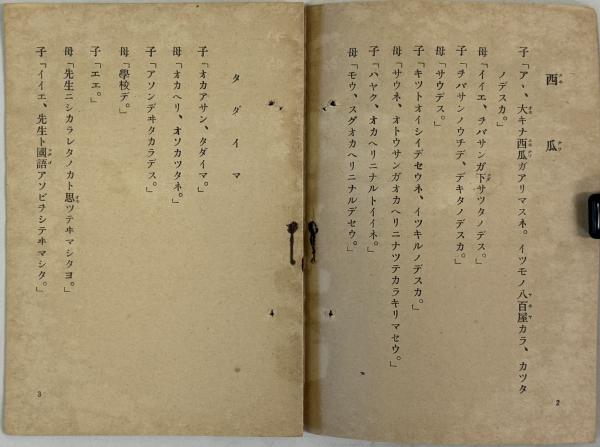 西瓜
子「アヽ、大キナ西瓜ガアリマスネ。イツモノ八百屋カラ、カツタ
ノデスカ。」
母「イイエ、ヲバサンガ下サツタノデス。」
子「ヲバサンノウチデ、デキタノデスカ。」
母「サウデス。」
子「キツトオイシイデセウネ、イツキルノデスカ。」
母「サウネ、オトウサンガオカヘリニナツテカラキリマセウ。」
子「ハヤク、オカヘリニナルトイイネ。」
母「モウ、スグオカヘリニナルデセウ。」
2
タダイマ
子「オカアサン、タダイマ。」
母「オカヘリ、オソカツタネ。」
子「アソンデヰタカラデス。」
母「學校デ。」
子「エエ。」
母「先生ニシカラレタノカト思ツテヰマシタヨ。」
子「イイエ、先生ト國語アソビヲシテヰマシタ。」
3